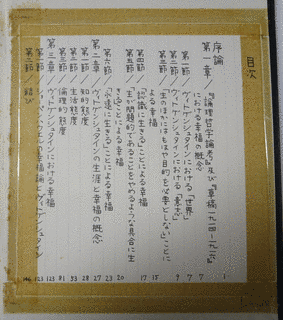 目次
序論 1
第一章 『論理哲学論考』及び『草稿一九一四-一九一六』
における幸福の概念 7
第一節 ヴィトゲンシュタインにおける「世界」 7
第二節 ヴィトゲンシュタインにおける「意志」 9
第三節 「生のほかにはもはや目的を必要としない」ことに
よる幸福 15
第四節 「認識に生きる」ことによる幸福 17
第五節 「生が問題的であることをやめるような具合に生
きる」ことによる幸福 20
第六節 「永遠に生きる」ことによる幸福 23
第二章 ヴィトゲンシュタインの生涯と幸福の概念 27
第一節 知的態度 28
第二節 生活態度 53
第三節 倫理的態度 81
第三章 ヴィトゲンシュタインにおける幸福 123
第一節 幸福論とヴィトゲンシュタイン 123
第二節 結び 146